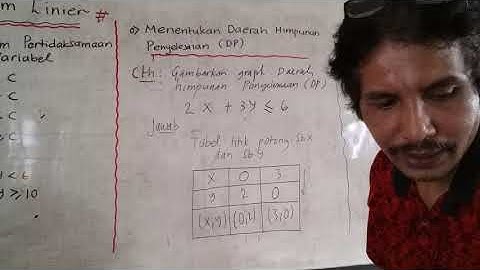 m Linier #
m Pertidaksamaan
Variabel
C
C
C
C
< 6
y ≥ 10
o) Menentukan Daerah Himpunan
Penyelesaian (DP)
Cth: Gambarkan graph Daerah
himpunan Penyelesaian (DP)
2x + 3y ≤ 6
Jawab
Tabel titik potong Sb X
dan Sb Y
x 0 3
y 2 0
(x,y) (0,2) (3,0)